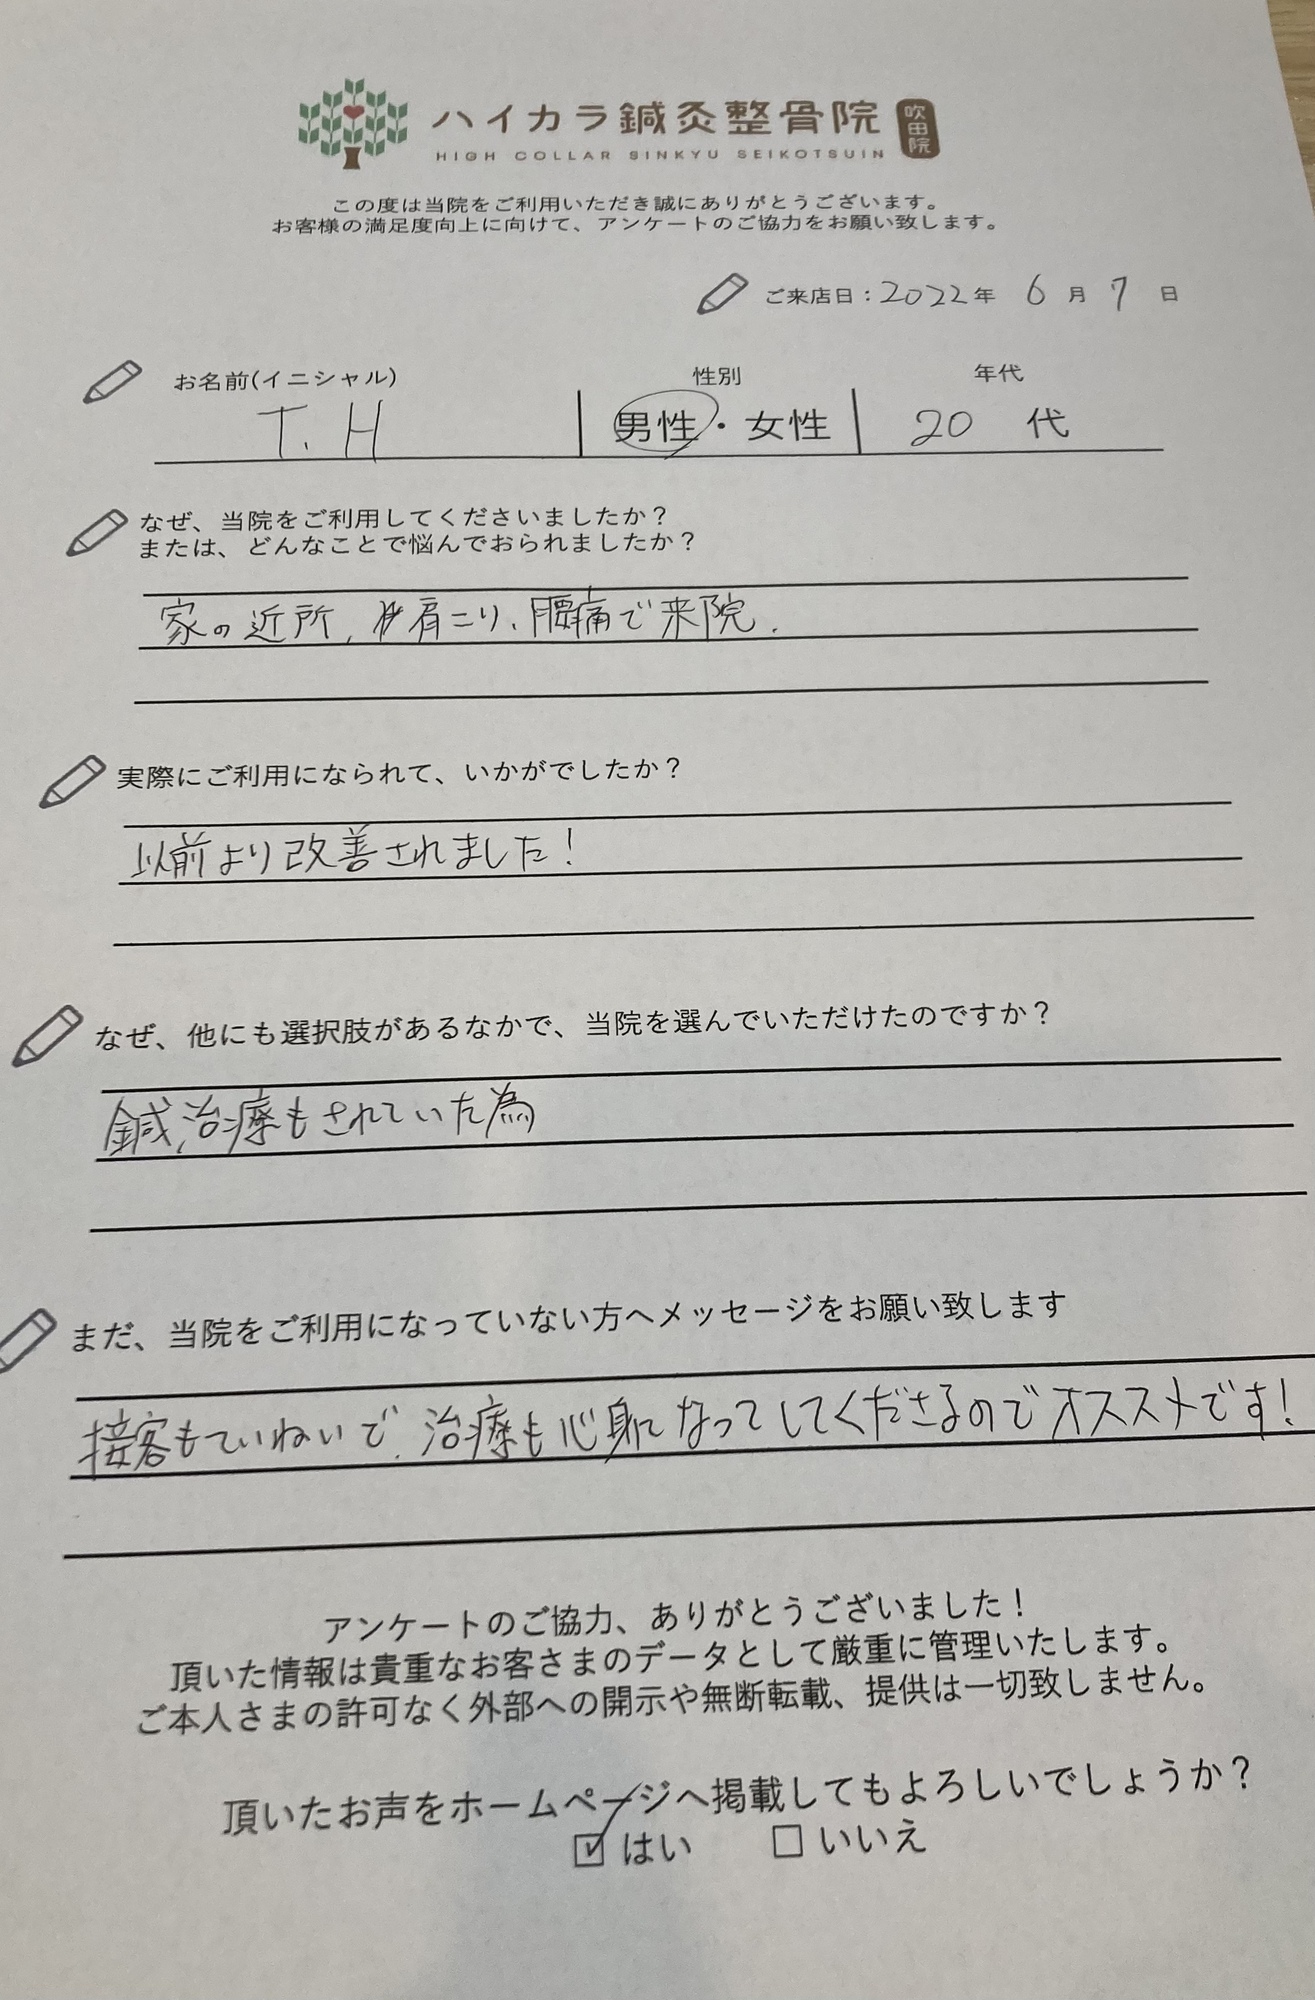 ハイカラ鍼灸整骨院 吹田院
HIGH COLLAR SINKYU SEIKOTSUIN
この度は当院をご利用いただき誠にありがとうございます。
お客様の満足度向上に向けて、アンケートのご協力をお願い致します。
ご来店日：2022年 6月 7日
お名前(イニシャル) 性別 年代
T. H 男性・女性 20代
なぜ、当院をご利用してくださいましたか？
または、どんなことで悩んでおられましたか？
家の近所、肩こり、腰痛で来院.
実際にご利用になられて、いかがでしたか？
以前より改善されました！
なぜ、他にも選択肢があるなかで、当院を選んでいただけたのですか？
鍼治療もされていた為
まだ、当院をご利用になっていない方へメッセージをお願い致します
接客もていねいで、治療も心身になってしてくださるのでオススメです！
アンケートのご協力、ありがとうございました！
頂いた情報は貴重なお客さまのデータとして厳重に管理いたします。
ご本人さまの許可なく外部への開示や無断転載、提供は一切致しません。
頂いたお声をホームページへ掲載してもよろしいでしょうか？
☑はい □いいえ